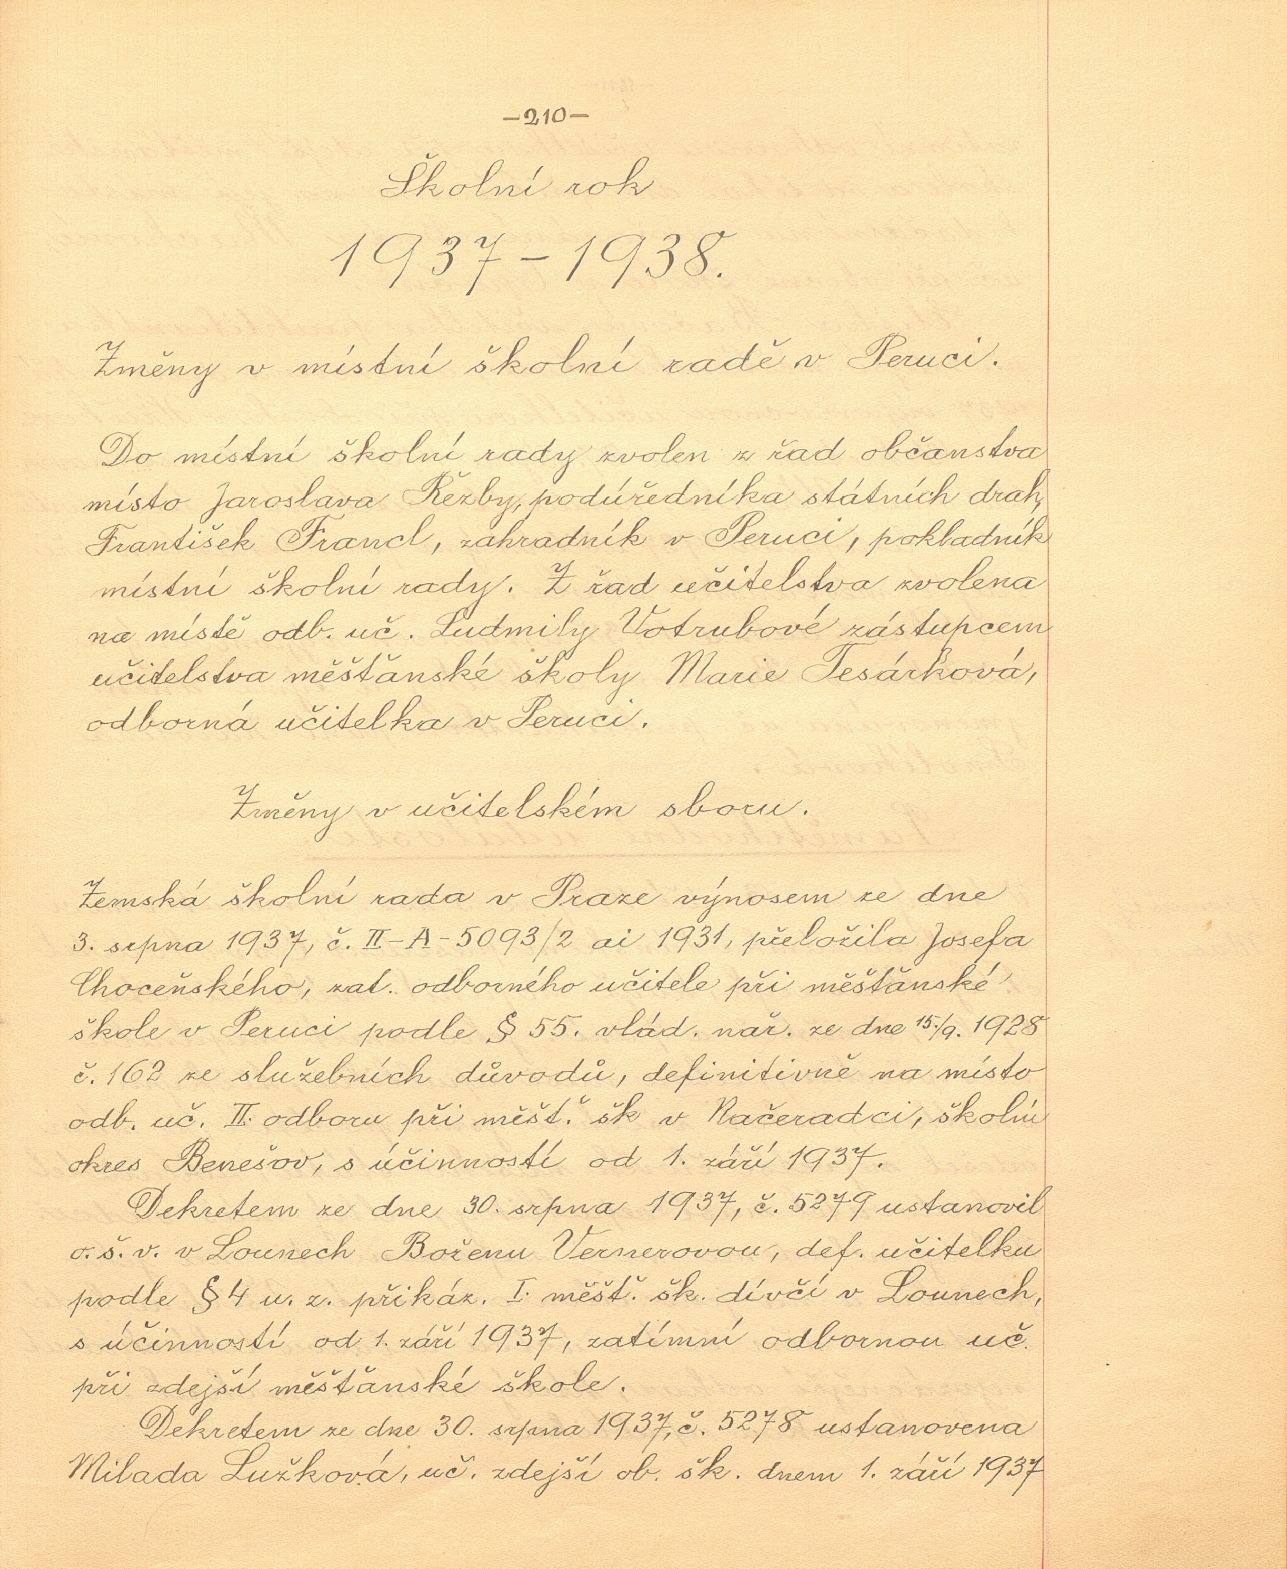 -210-
Školní rok
1937-1938.
Změny v místní školní radě v Peruci.
Do místní školní rady zvolen z řad občanstva
místo Jaroslava Řezby, podúředníka státních drah,
František Francl, zahradník v Peruci, pokladník
místní školní rady. Z řad učitelstva zvolena
na místě odb. uč. Ludmily Votrubové zástupcem
učitelstva měšťanské školy Marie Tesárková,
odborná učitelka v Peruci.
Změny v učitelském sboru.
Zemská školní rada v Praze výnosem ze dne
3. srpna 1937, č. II-A-5093/2 ai 1931, přeložila Josefa
Choceňského, zat. odborného učitele při měšťanské
škole v Peruci podle § 55. vlád. nař. ze dne 15./9. 1928
č. 162 ze služebních důvodů, definitivně na místo
odb. uč. II. odboru při měšť. šk v Načeradci, školní
okres Benešov, s účinností od 1. září 1937.
Dekretem ze dne 30. srpna 1937, č. 5279 ustanovil
o. š. v. v Lounech Boženu Vernerovou, def. učitelku
podle § 4 u. z. přikáz. I. měšť. šk. dívčí v Lounech,
s účinností od 1. září 1937, zatímní odbornou uč.
při zdejší měšťanské škole.
Dekretem ze dne 30. srpna 1937, č. 5278 ustanovena
Milada Lužková, uč. zdejší ob. šk. dnem 1. září 1937